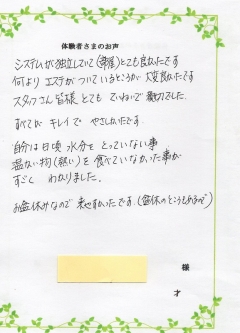 体験者さまのお声
システムが独立していて(部屋)とても良かったです
何より エステがついているところが 大変良かったです
スタッフさん 皆様 とても ていねいで 親切でした。
すべてが キレイで やさしかったです。
自分は日頃 水分を とっていない事
温かい物(熱い)を 食べていなかった事が
すごく わかりました。
お盆休みなので 来やすかったです。(盆休のところもあるので)
様
才